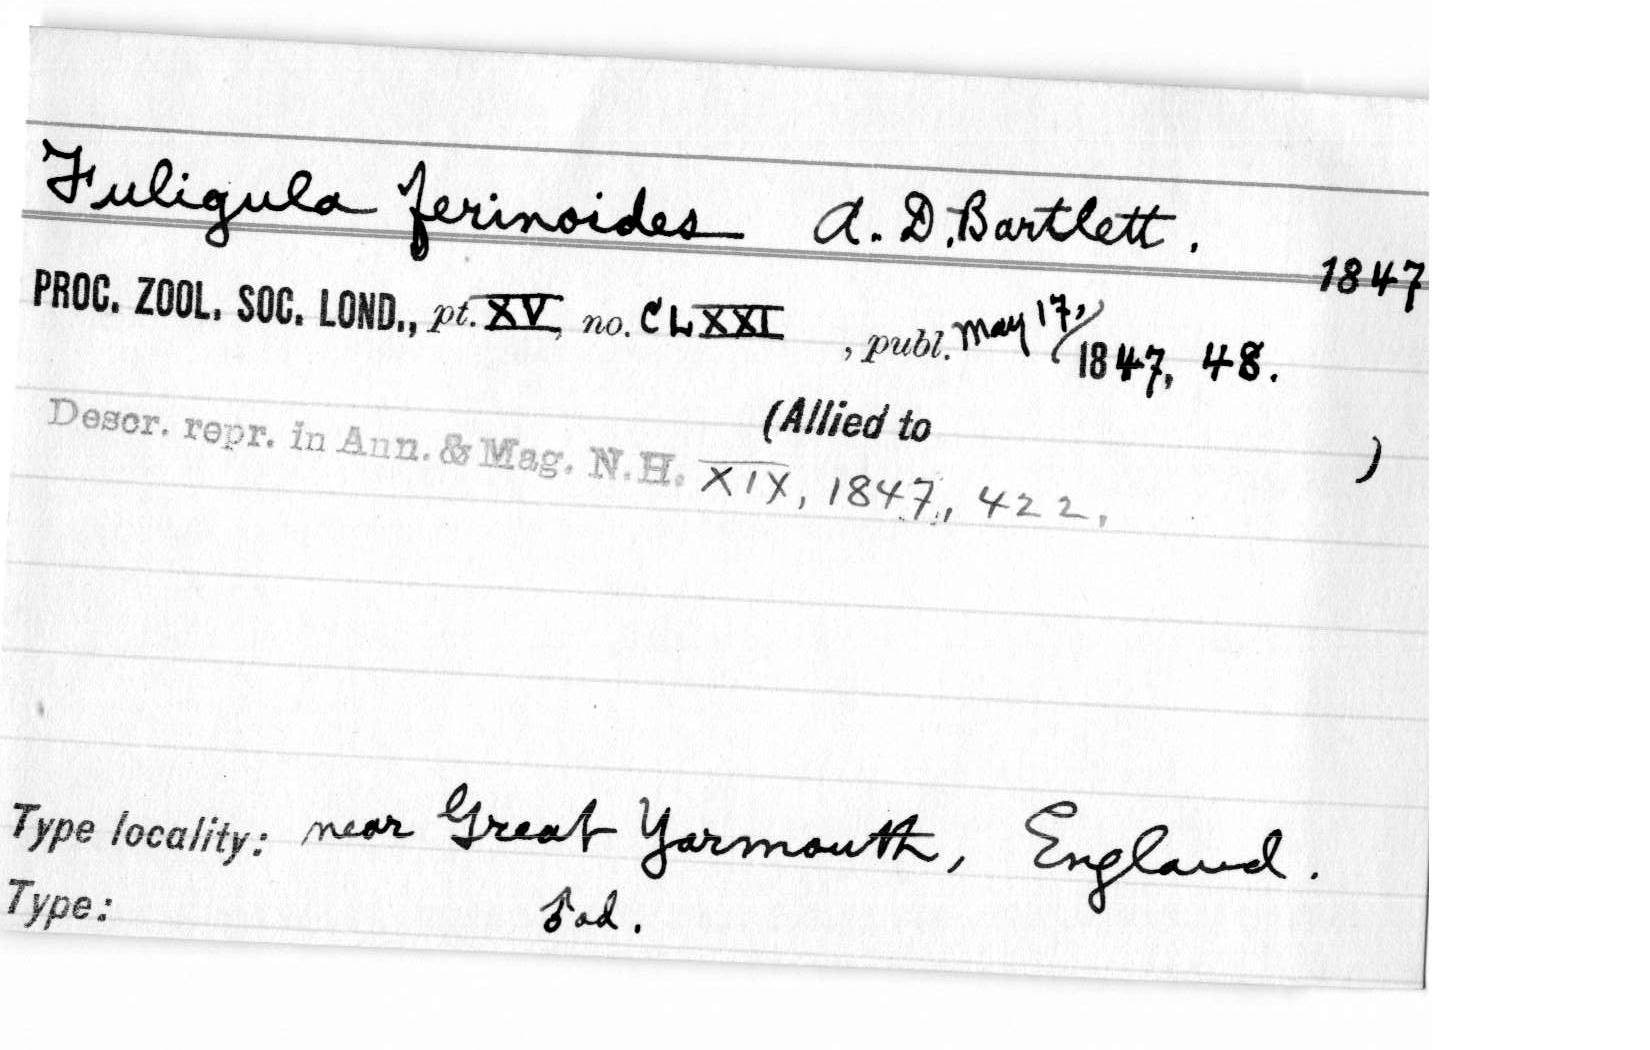 Fuligula ferinoides A. D. Bartlett. 1847
PROC. ZOOL. SOC. LOND., pt. XV, no. CLXXI, publ. May 17, / 1847, 48.
(Allied to )
Descr. repr. in Ann. & Mag. N.H. XIX, 1847, 422.
Type locality: near Great Yarmouth, England.
Type: ♂ ad.